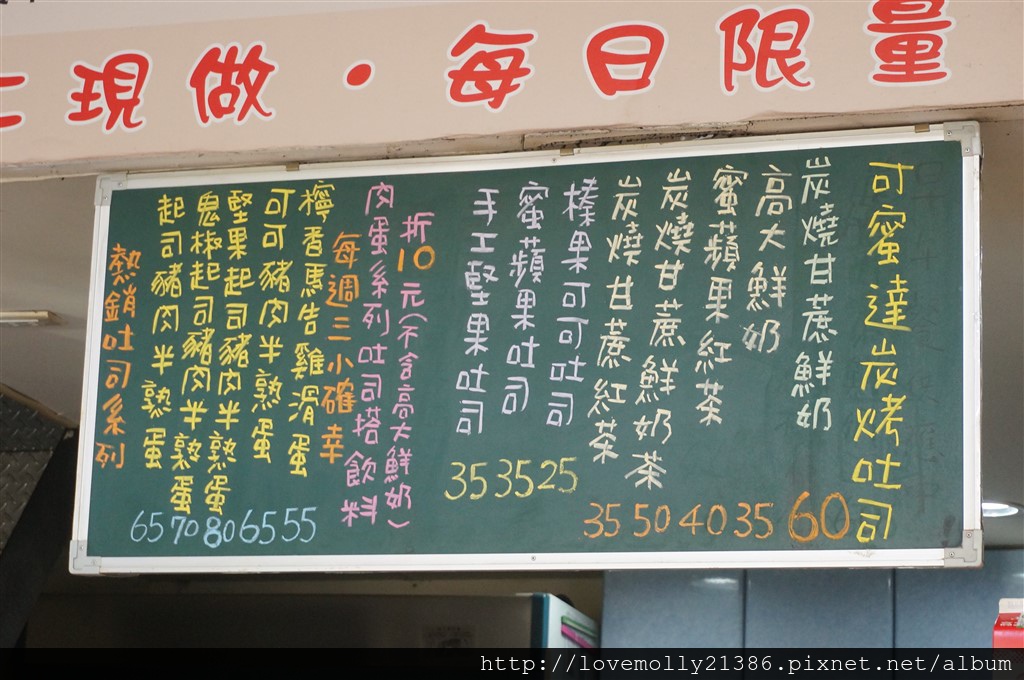 現做・每日限量
可蜜達炭烤吐司
炭燒甘蔗鮮奶 60
高大鮮奶 35
蜜蘋果紅茶 40
炭燒甘蔗鮮奶茶 50
炭燒甘蔗紅茶 35
榛果可可吐司 25
蜜蘋果吐司 35
手工堅果吐司 35
熱銷吐司系列
起司豬肉半熟蛋 65
鬼椒起司豬肉半熟蛋 70
堅果起司豬肉半熟蛋 80
可可豬肉半熟蛋 65
檸香馬告雞滑蛋 55
每週三小確幸
肉蛋系列吐司搭飲料
折10元(不含高大鮮奶)
http://lovemolly21386.pixnet.net/album